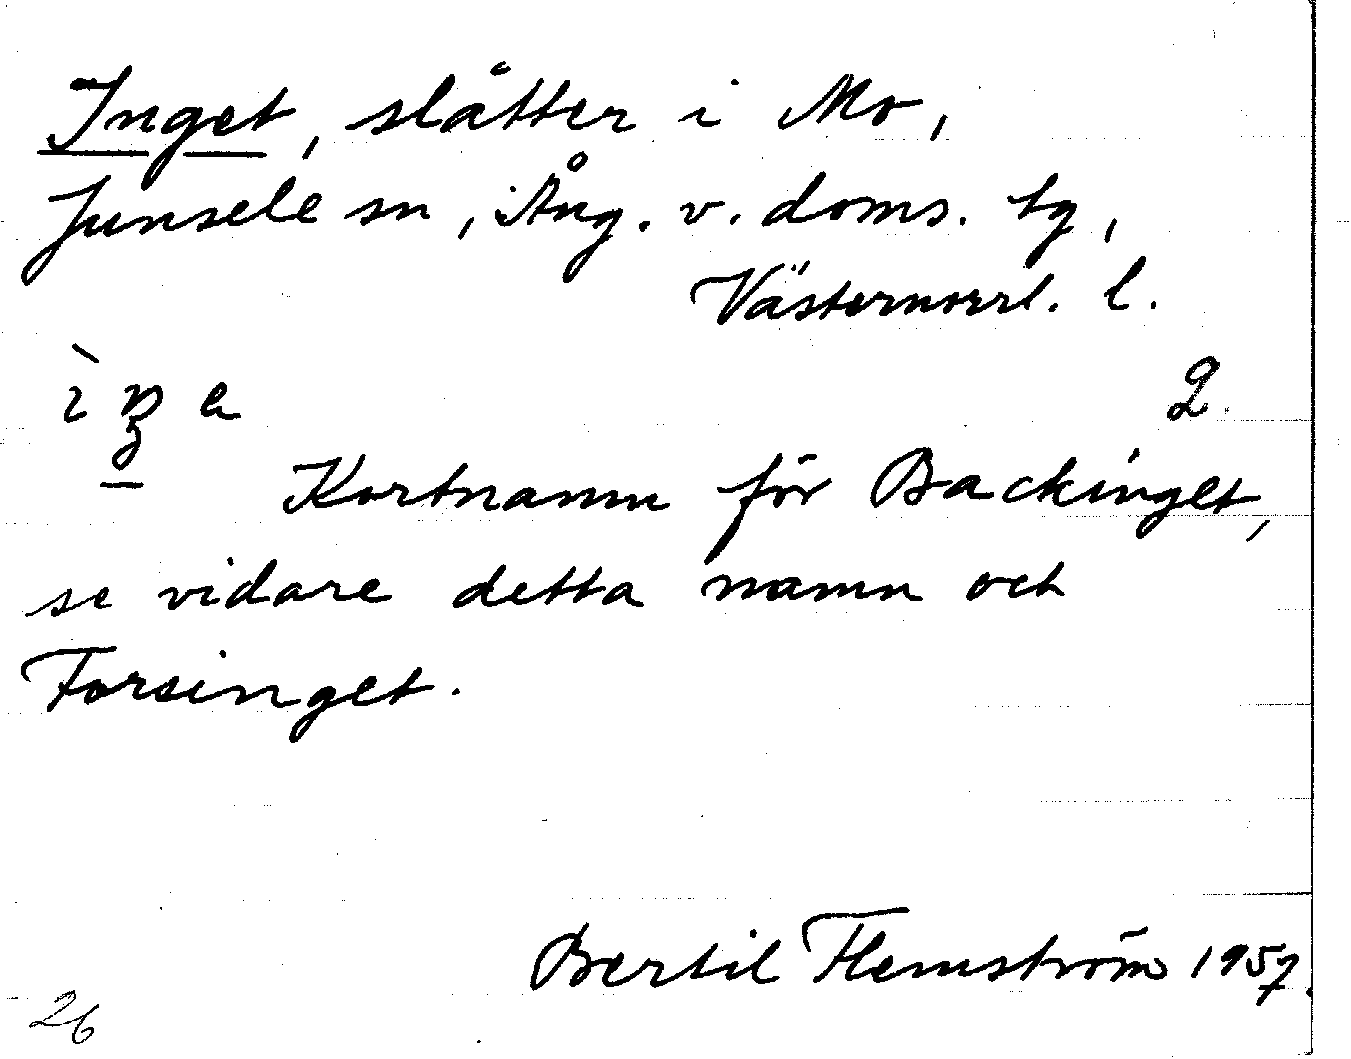 Inget, slåtter i Mo,
Junsele sn, Ång. v. doms. tg,
Västernorrl. l.
2.
Kortnamn för Backinget,
se vidare detta namn och
Forsinget.
Bertil Flemström 1957.
26